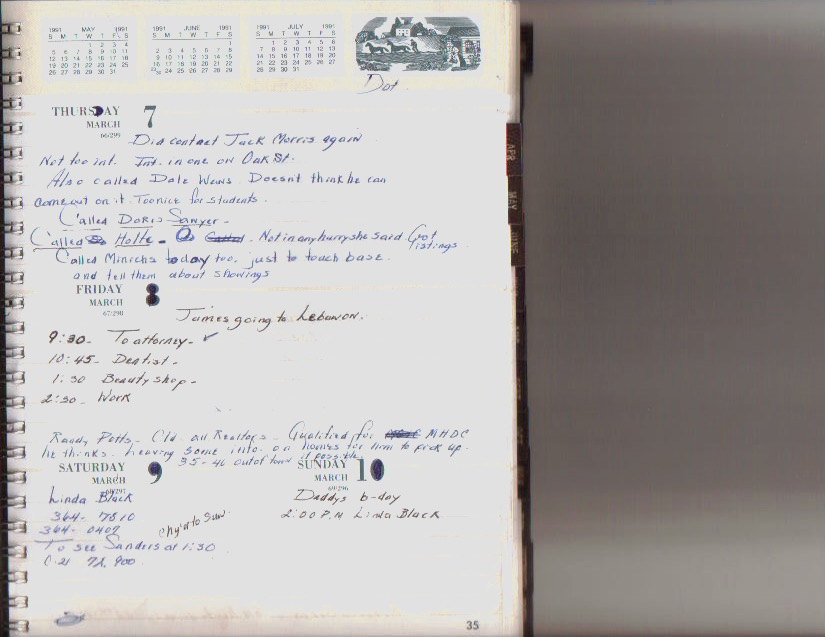 1991 MAY 1991
S M T W T F S
1 2 3 4
5 6 7 8 9 10 11
12 13 14 15 16 17 18
19 20 21 22 23 24 25
26 27 28 29 30 31
1991 JUNE 1991
S M T W T F S
1
2 3 4 5 6 7 8
9 10 11 12 13 14 15
16 17 18 19 20 21 22
23/30 24 25 26 27 28 29
1991 JULY 1991
S M T W T F S
1 2 3 4 5 6
7 8 9 10 11 12 13
14 15 16 17 18 19 20
21 22 23 24 25 26 27
28 29 30 31
Dot
THURSDAY 7
MARCH
66/299
Did contact Jack Morris again
Not too int. Int. in one on Oak St.
Also called Dale Wens. Doesnt think he can
come out on it Too nice for students.
Called Doris Sawyer -
Called Holte - Not in any hurry she said. Got
listings
Called Minicks today too, just to touch base.
and tell them about showings
FRIDAY 8
MARCH
67/298
James going to Lebanon.
9:30- To attorney- ✓
10:45- Dentist-
1:30 Beauty shop-
2:30- Work
Randy Potts- Cld all Realtors- Qualified for MHDC
he thinks. Leaving some info. on homes for him to pick up.
35-40 out of town if possible.
SATURDAY 9
MARCH
68/297
Linda Black
364- 7810
364- 0402
To see Sanders at 1:30
72,900
SUNDAY 10
MARCH
69/296
Daddys b-day
2:00 P.M Linda Black
APR
MAY
JUNE
35